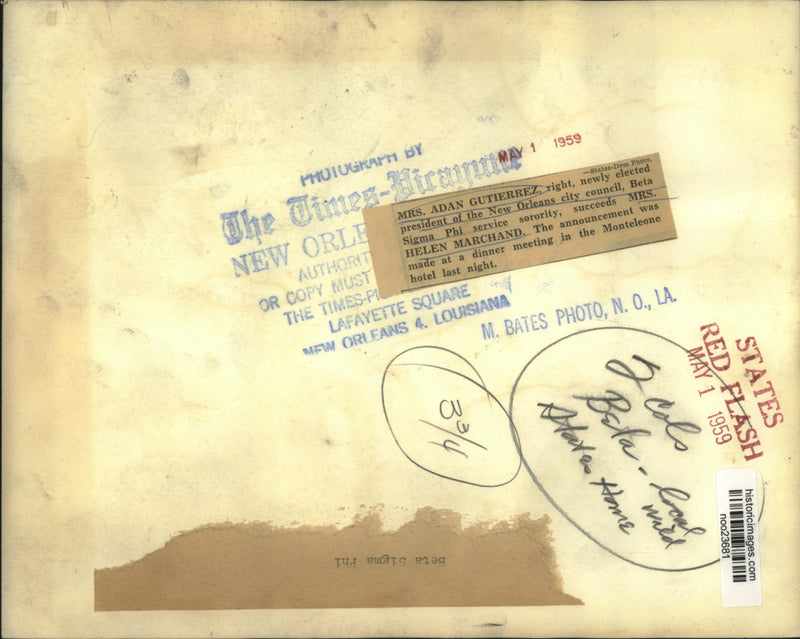 PHOTOGRAPH BY
The Times-Picayune
NEW ORLE
AUTHORIT
OR COPY MUST
THE TIMES-PI
LAFAYETTE SQUARE
NEW ORLEANS 4, LOUISIANA
MAY 1 1959
—States-Item Photo.
MRS. ADAN GUTIERREZ, right, newly elected
president of the New Orleans city council, Beta
Sigma Phi service sorority, succeeds MRS.
HELEN MARCHAND. The announcement was
made at a dinner meeting in the Monteleone
hotel last night.
M. BATES PHOTO, N. O., LA.
STATES
RED FLASH
MAY 1 1959
3 3/4
2 cols
Beta - local
States Home
historicimages.com
noo23681
Beta Sigma Phi